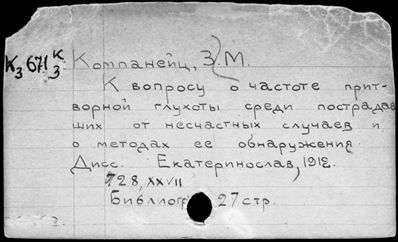 К3 671 К/3
Компанейц, З. М.
К вопросу о частоте прит-
ворной глухоты среди пострадав
ших от несчастных случаев и
о методах ее обнаружения.
Дисс. Екатеринослав, 1912.
728, XXVII
Библиогр 27 стр.